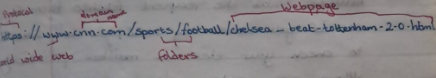 Protocol domain name Webpage
https://www.cnn.com/sports/football/chelsea_beat-tottenham-2-0.html
wide web folders